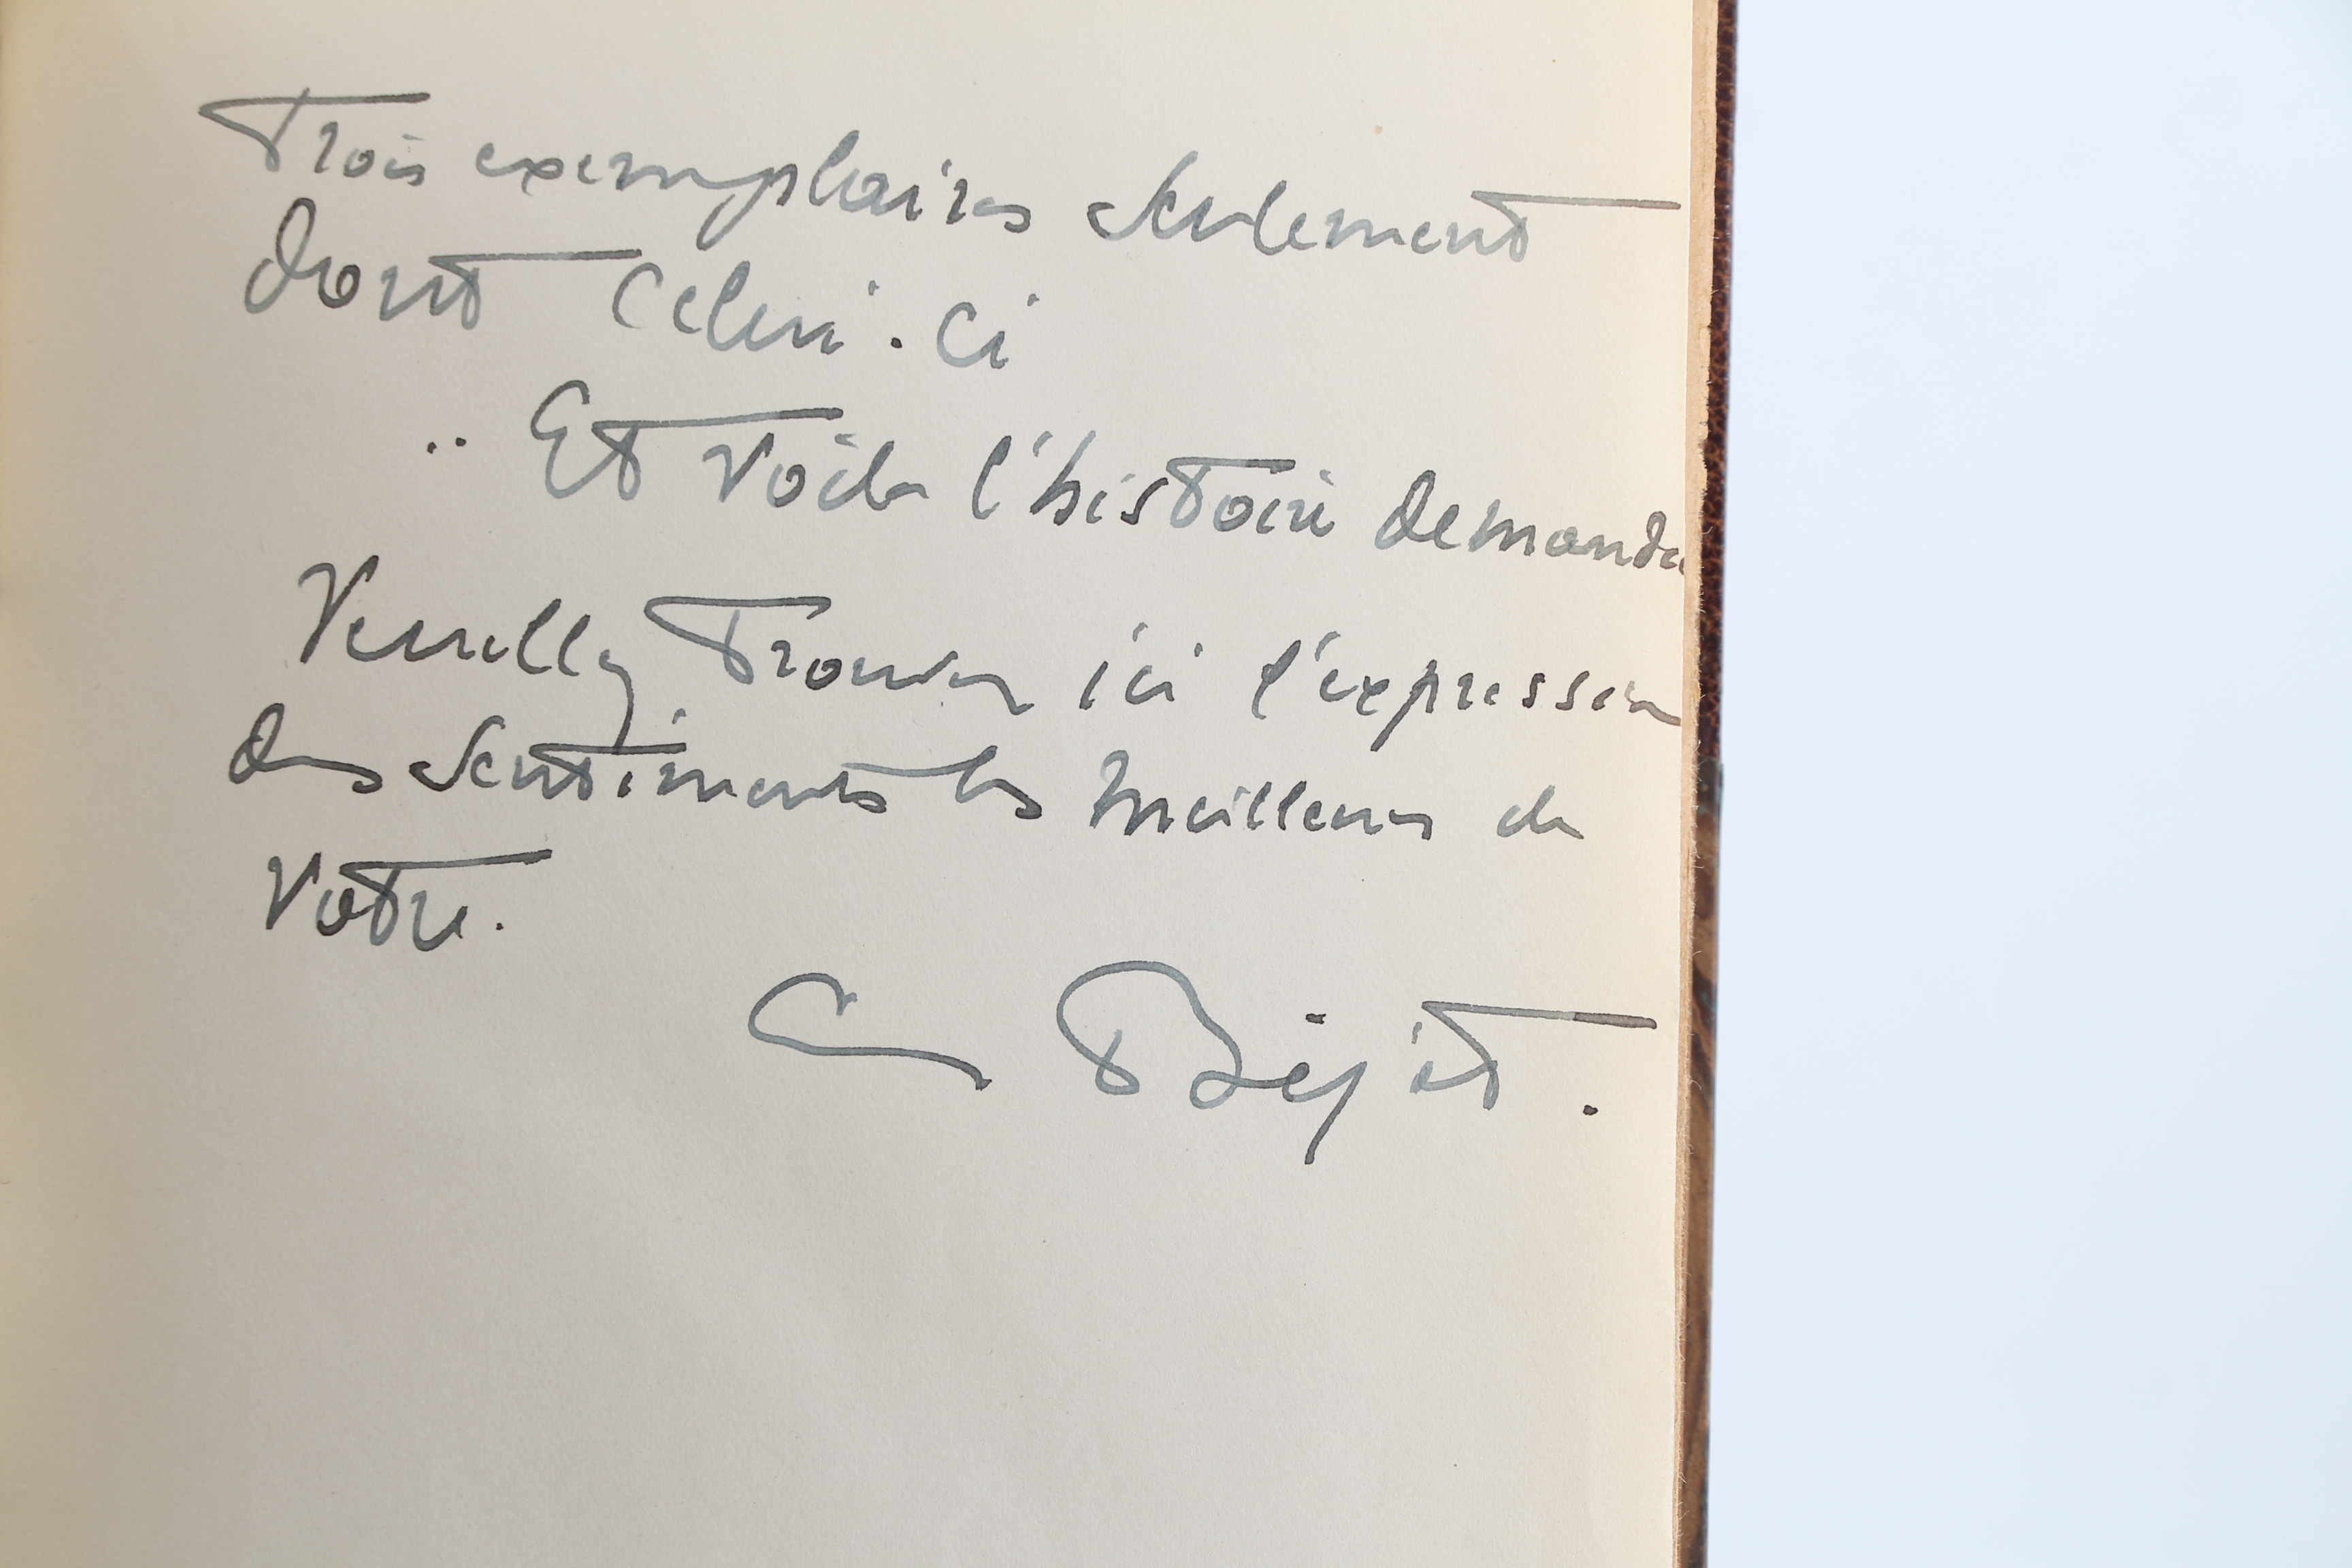 Trois exemplaires seulement
dont celui-ci
.. Et voila l'histoire demandée
Veuillez trouver ici l'expression
des sentiments les meilleurs de
votre.
Béjot.